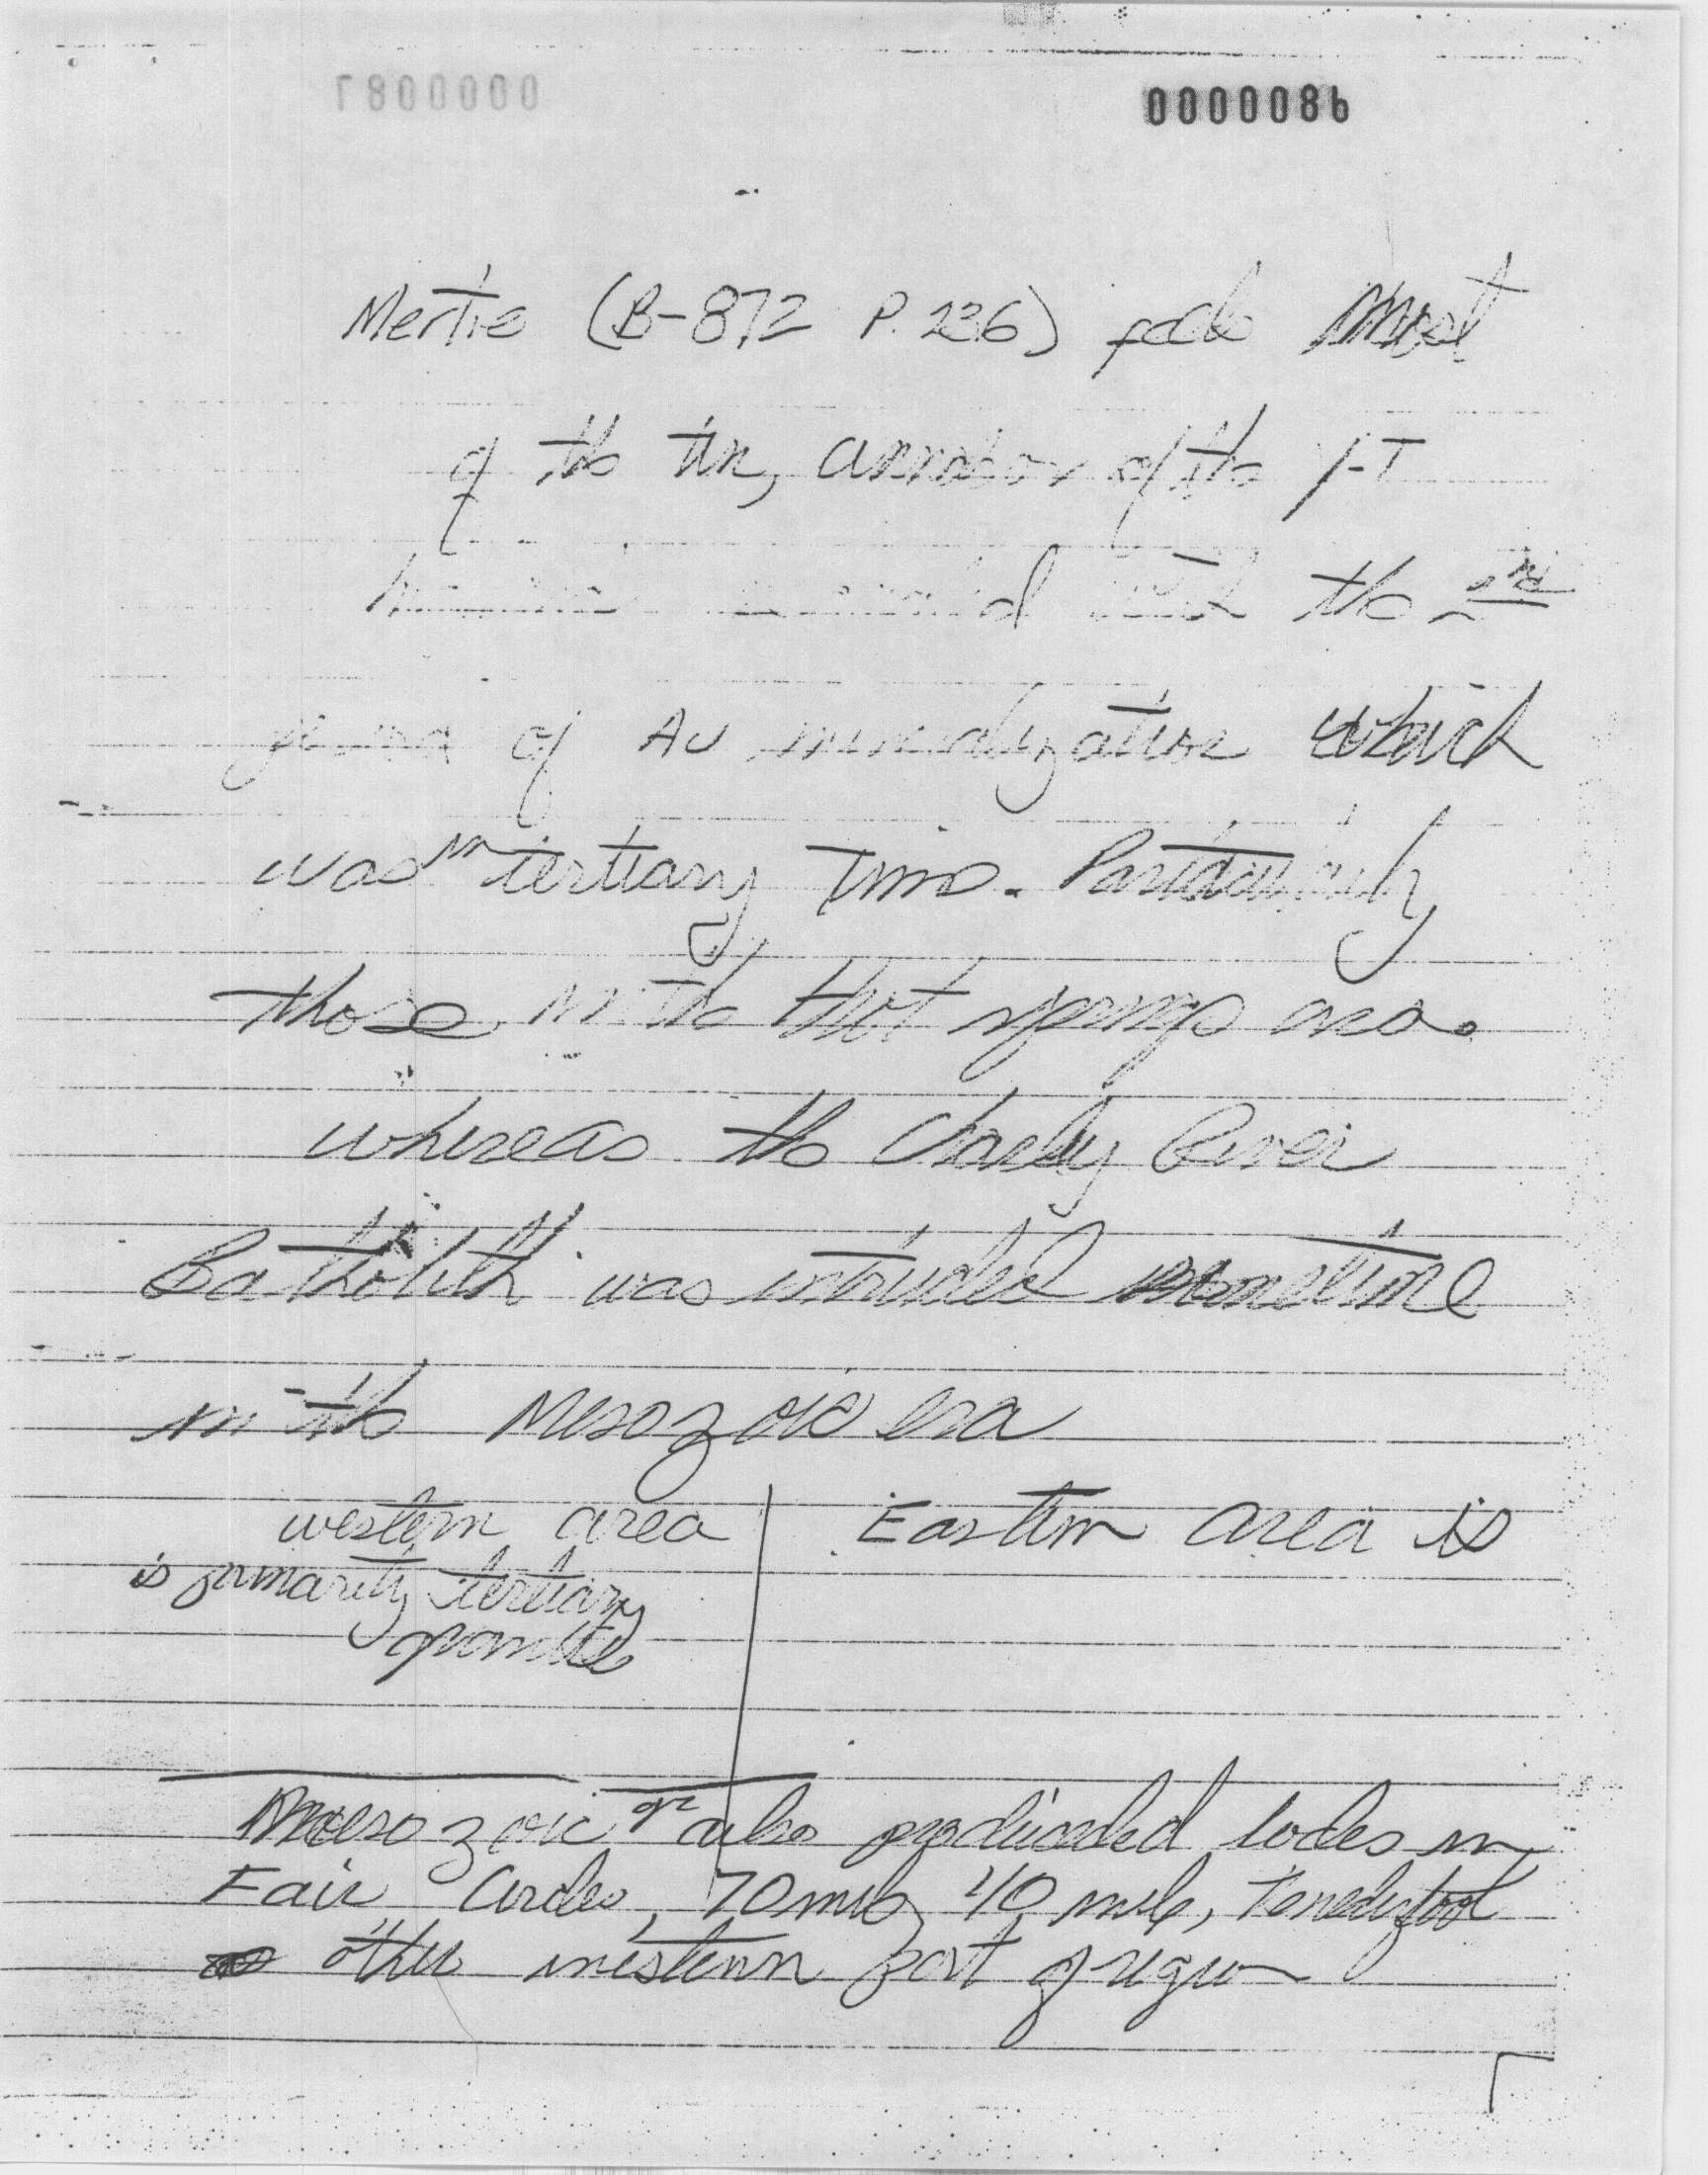 0000086
Mertie (B-872 P. 236) feels most
of the tin, cinnabar of the Y-T
with the 2nd
period of Au mineralization which
was in tertiary time. Particularly
those in the Hot springs area.
whereas the Charley River
Batholith was intruded sometime
in the Mesozoic era
western area
is primarily tertiary
granite
Eastern area is
Mesozoic gr also produced lodes in
Fair Circle, 70 mile, 40 mile,
other western part of region